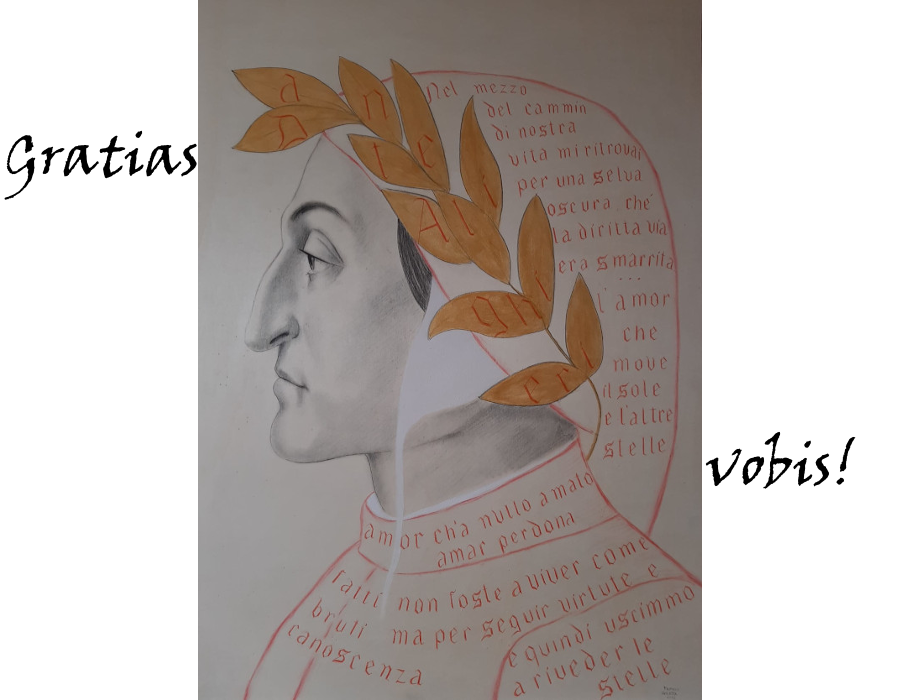 Gratias
vobis!
Dante
Alighieri
Nel mezzo
del cammin
di nostra
vita mi ritrovai
per una selva
oscura ché
la diritta via
era smarrita
...
l'amor
che
move
il sole
e l'altre
stelle
amor ch'a nullo amato
amar perdona
fatti non foste a viver come
bruti ma per seguir virtute e
canoscenza
e quindi uscimmo
a riveder le
stelle